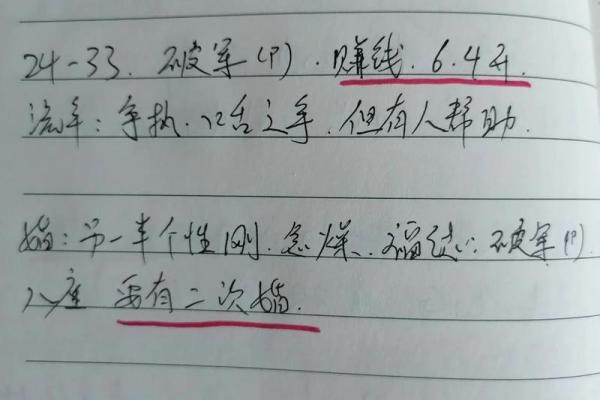 24-33. 破军(P). 赚钱. 6.4开.
流年: 争执. 口舌之争. 但有人帮助.
婚: 另一半个性刚. 急燥. 福德: 破军(P).
入座 要有二次婚.